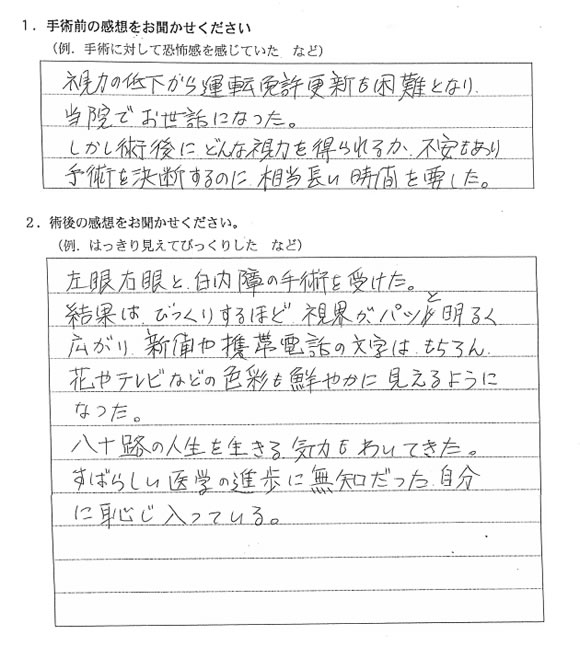 1．手術前の感想をお聞かせください
（例．手術に対して恐怖感を感じていた　など）
視力の低下から運転免許更新も困難となり
当院でお世話になった。
しかし術後にどんな視力を得られるか、不安もあり
手術を決断するのに相当長い時間を要した。
2．術後の感想をお聞かせください。
（例．はっきり見えてびっくりした　など）
左眼右眼と、白内障の手術を受けた。
結果は、びっくりするほど視界が、パッと明るく
広がり、新聞や携帯電話の文字は、もちろん、
花やテレビなどの色彩も鮮やかに見えるように
なった。
八十路の人生を生きる気力もわいてきた。
すばらしい医学の進歩に無知だった自分
に恥じ入っている。